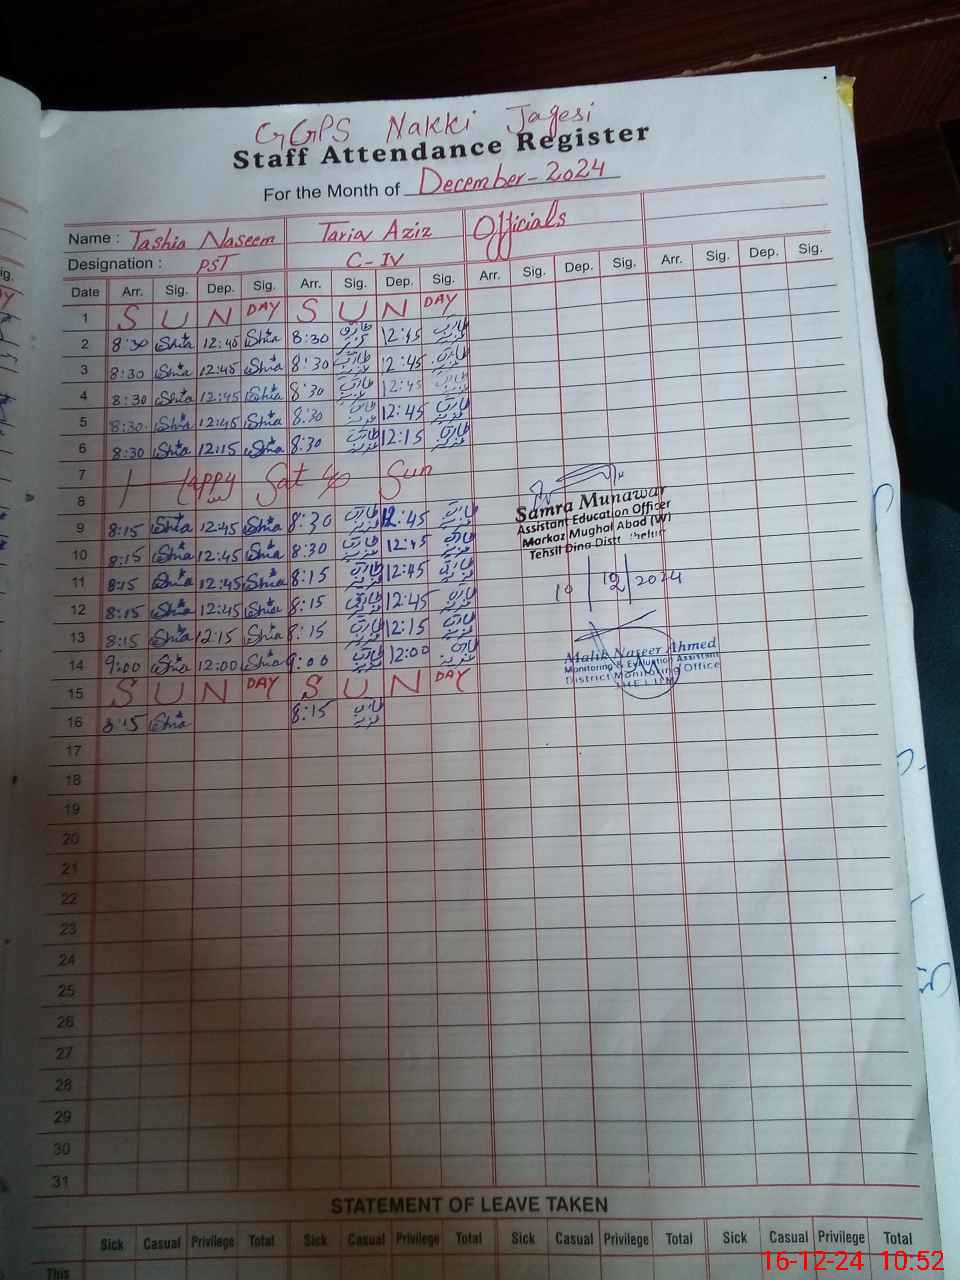 GGPS Nakki Jagesi
Staff Attendance Register
For the Month of December-2024
Name : Tashia Naseem Tariq Aziz Officials
Designation : PST C-IV
Date Arr. Sig. Dep. Sig. Arr. Sig. Dep. Sig. Arr. Sig. Dep. Sig. Arr. Sig. Dep. Sig.
1 S U N DAY S U N DAY
2 8:30 12:45 8:30 طارق عزیز 12:45 طارق عزیز
3 8:30 12:45 8:30 طارق عزیز 12:45 طارق عزیز
4 8:30 12:45 8:30 طارق عزیز 12:45 طارق عزیز
5 8:30 12:45 8:30 طارق عزیز 12:45 طارق عزیز
6 8:30 12:15 8:30 طارق عزیز 12:15 طارق عزیز
7 Happy Sat Sun
8
9 8:15 12:45 8:30 طارق عزیز 12:45 طارق عزیز
10 8:15 12:45 8:30 طارق عزیز 12:45 طارق عزیز
11 8:15 12:45 8:15 طارق عزیز 12:45 طارق عزیز
12 8:15 12:45 8:15 طارق عزیز 12:45 طارق عزیز
13 8:15 12:15 8:15 طارق عزیز 12:15 طارق عزیز
14 9:00 12:00 9:00 طارق عزیز 12:00 طارق عزیز
15 S U N DAY S U N DAY
16 8:15 8:15 طارق عزیز
Samra Munawar
Assistant Education Officer
Markaz Mughal Abad (W)
Tehsil Dina Distt Jhelum
12/2024
Malik Naseer Ahmed
Monitoring & Evaluation Assistant
District Monitoring Office
JHELUM
17
18
19
20
21
22
23
24
25
26
27
28
29
30
31
STATEMENT OF LEAVE TAKEN
Sick Casual Privilege Total Sick Casual Privilege Total Sick Casual Privilege Total Sick Casual Privilege Total
This
16-12-24 10:52